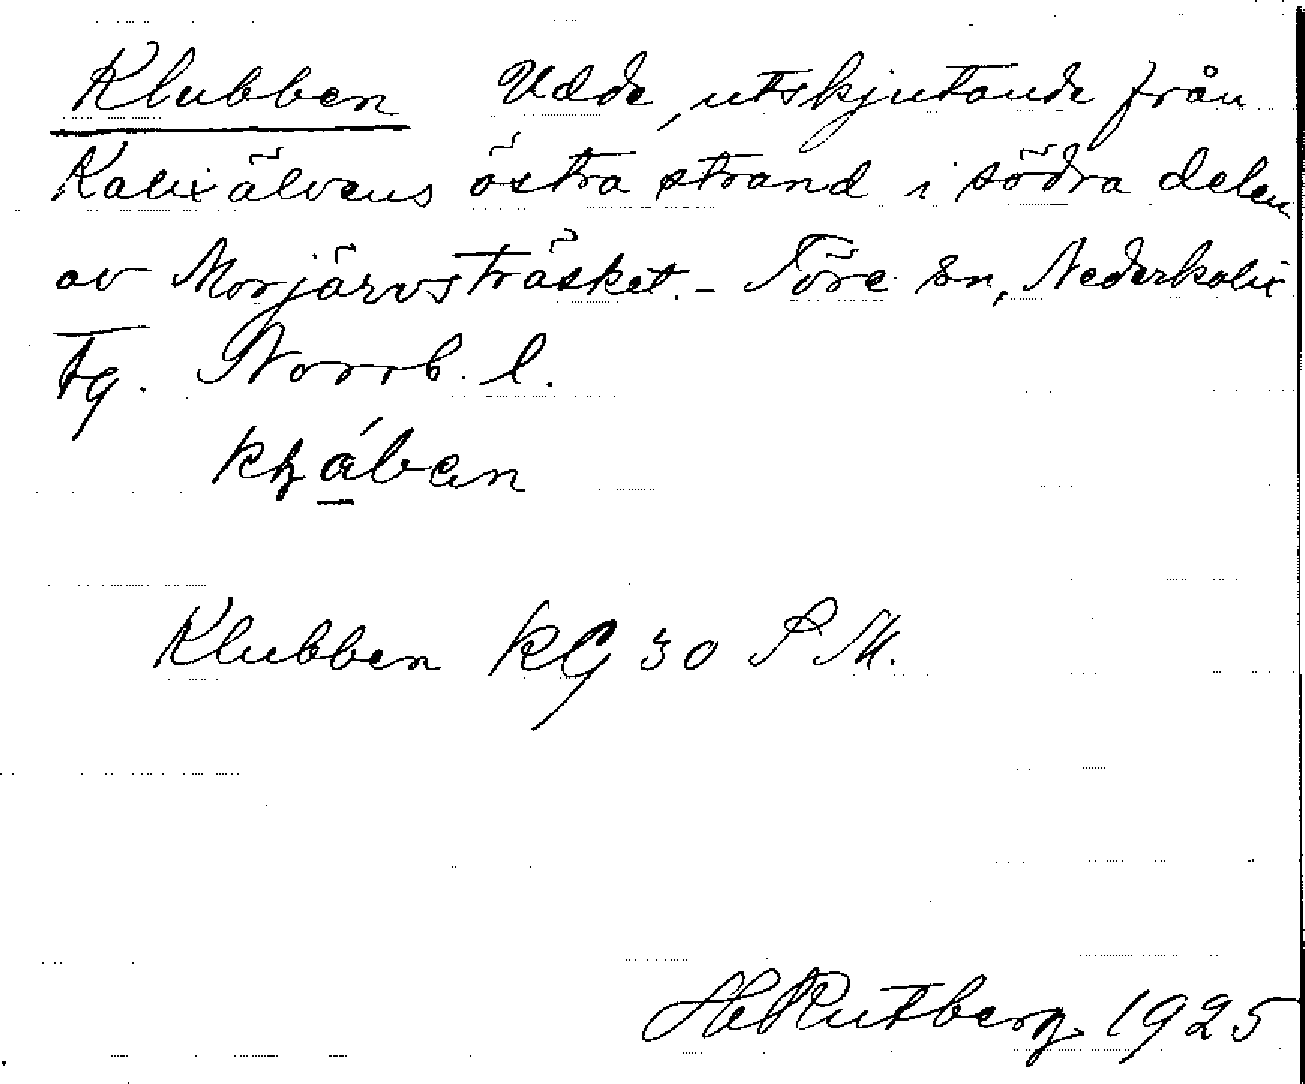 Klubben Udde, utskjutande från
Kalixälvens östra strand i södra delen
av Morjärvsträsket. – Töre sn, Nederkalix
tg. Norrb. l.
Klubben KG 30 S M.
H Rutberg 1925